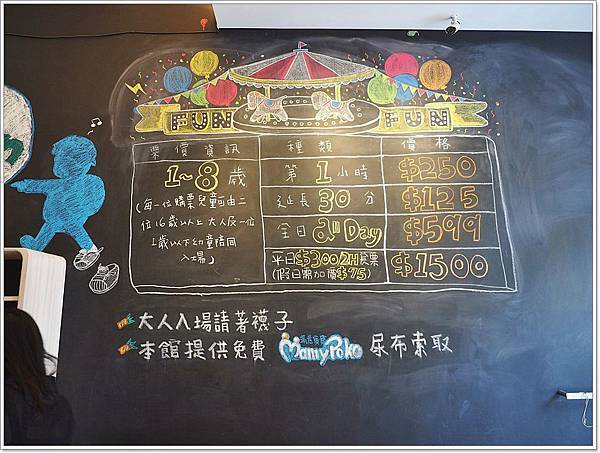 FUN FUN
票價資訊 種類 價格
1~8歲
(每一位購票兒童可由二
位16歲以上大人及一位
1歲以下幼童陪同
入場」
第1小時 $250
延長30分 $125
全日 all Day $599
平日$300 2H套票
(假日需加價$75) $1500
大人入場請著襪子
本館提供免費 滿意寶寶 MamyPoko 尿布索取